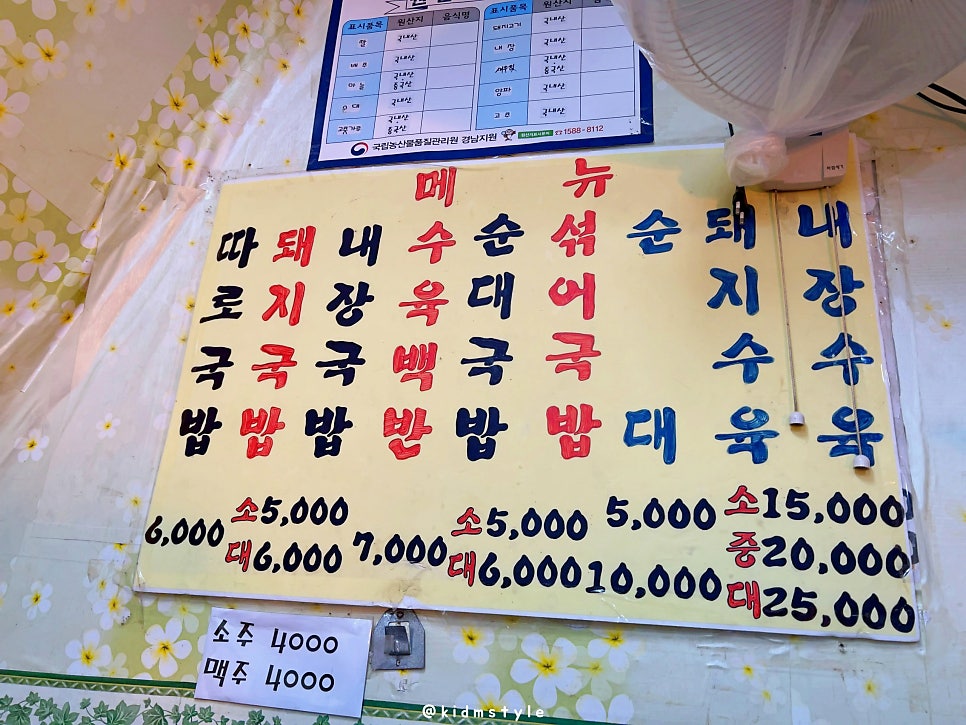 표시품목 원산지 음식명 표시품목 원산지
쌀 국내산 돼지고기 국내산
배추 국내산 내장 국내산
마늘 국내산 중국산 새우젓 국내산 중국산
순대 국내산 양파 국내산
고춧가루 국내산 중국산 고추 국내산
국립농산물품질관리원 경남지원 1588-8112
메뉴
따로국밥
돼지국밥
내장국밥
수육백반
순대국밥
섞어국밥
순대
돼지수육
내장수육
6,000
소 5,000
대 6,000
7,000
소 5,000
대 6,000
5,000
10,000
소 15,000
중 20,000
대 25,000
소주 4000
맥주 4000
@kidmstyle